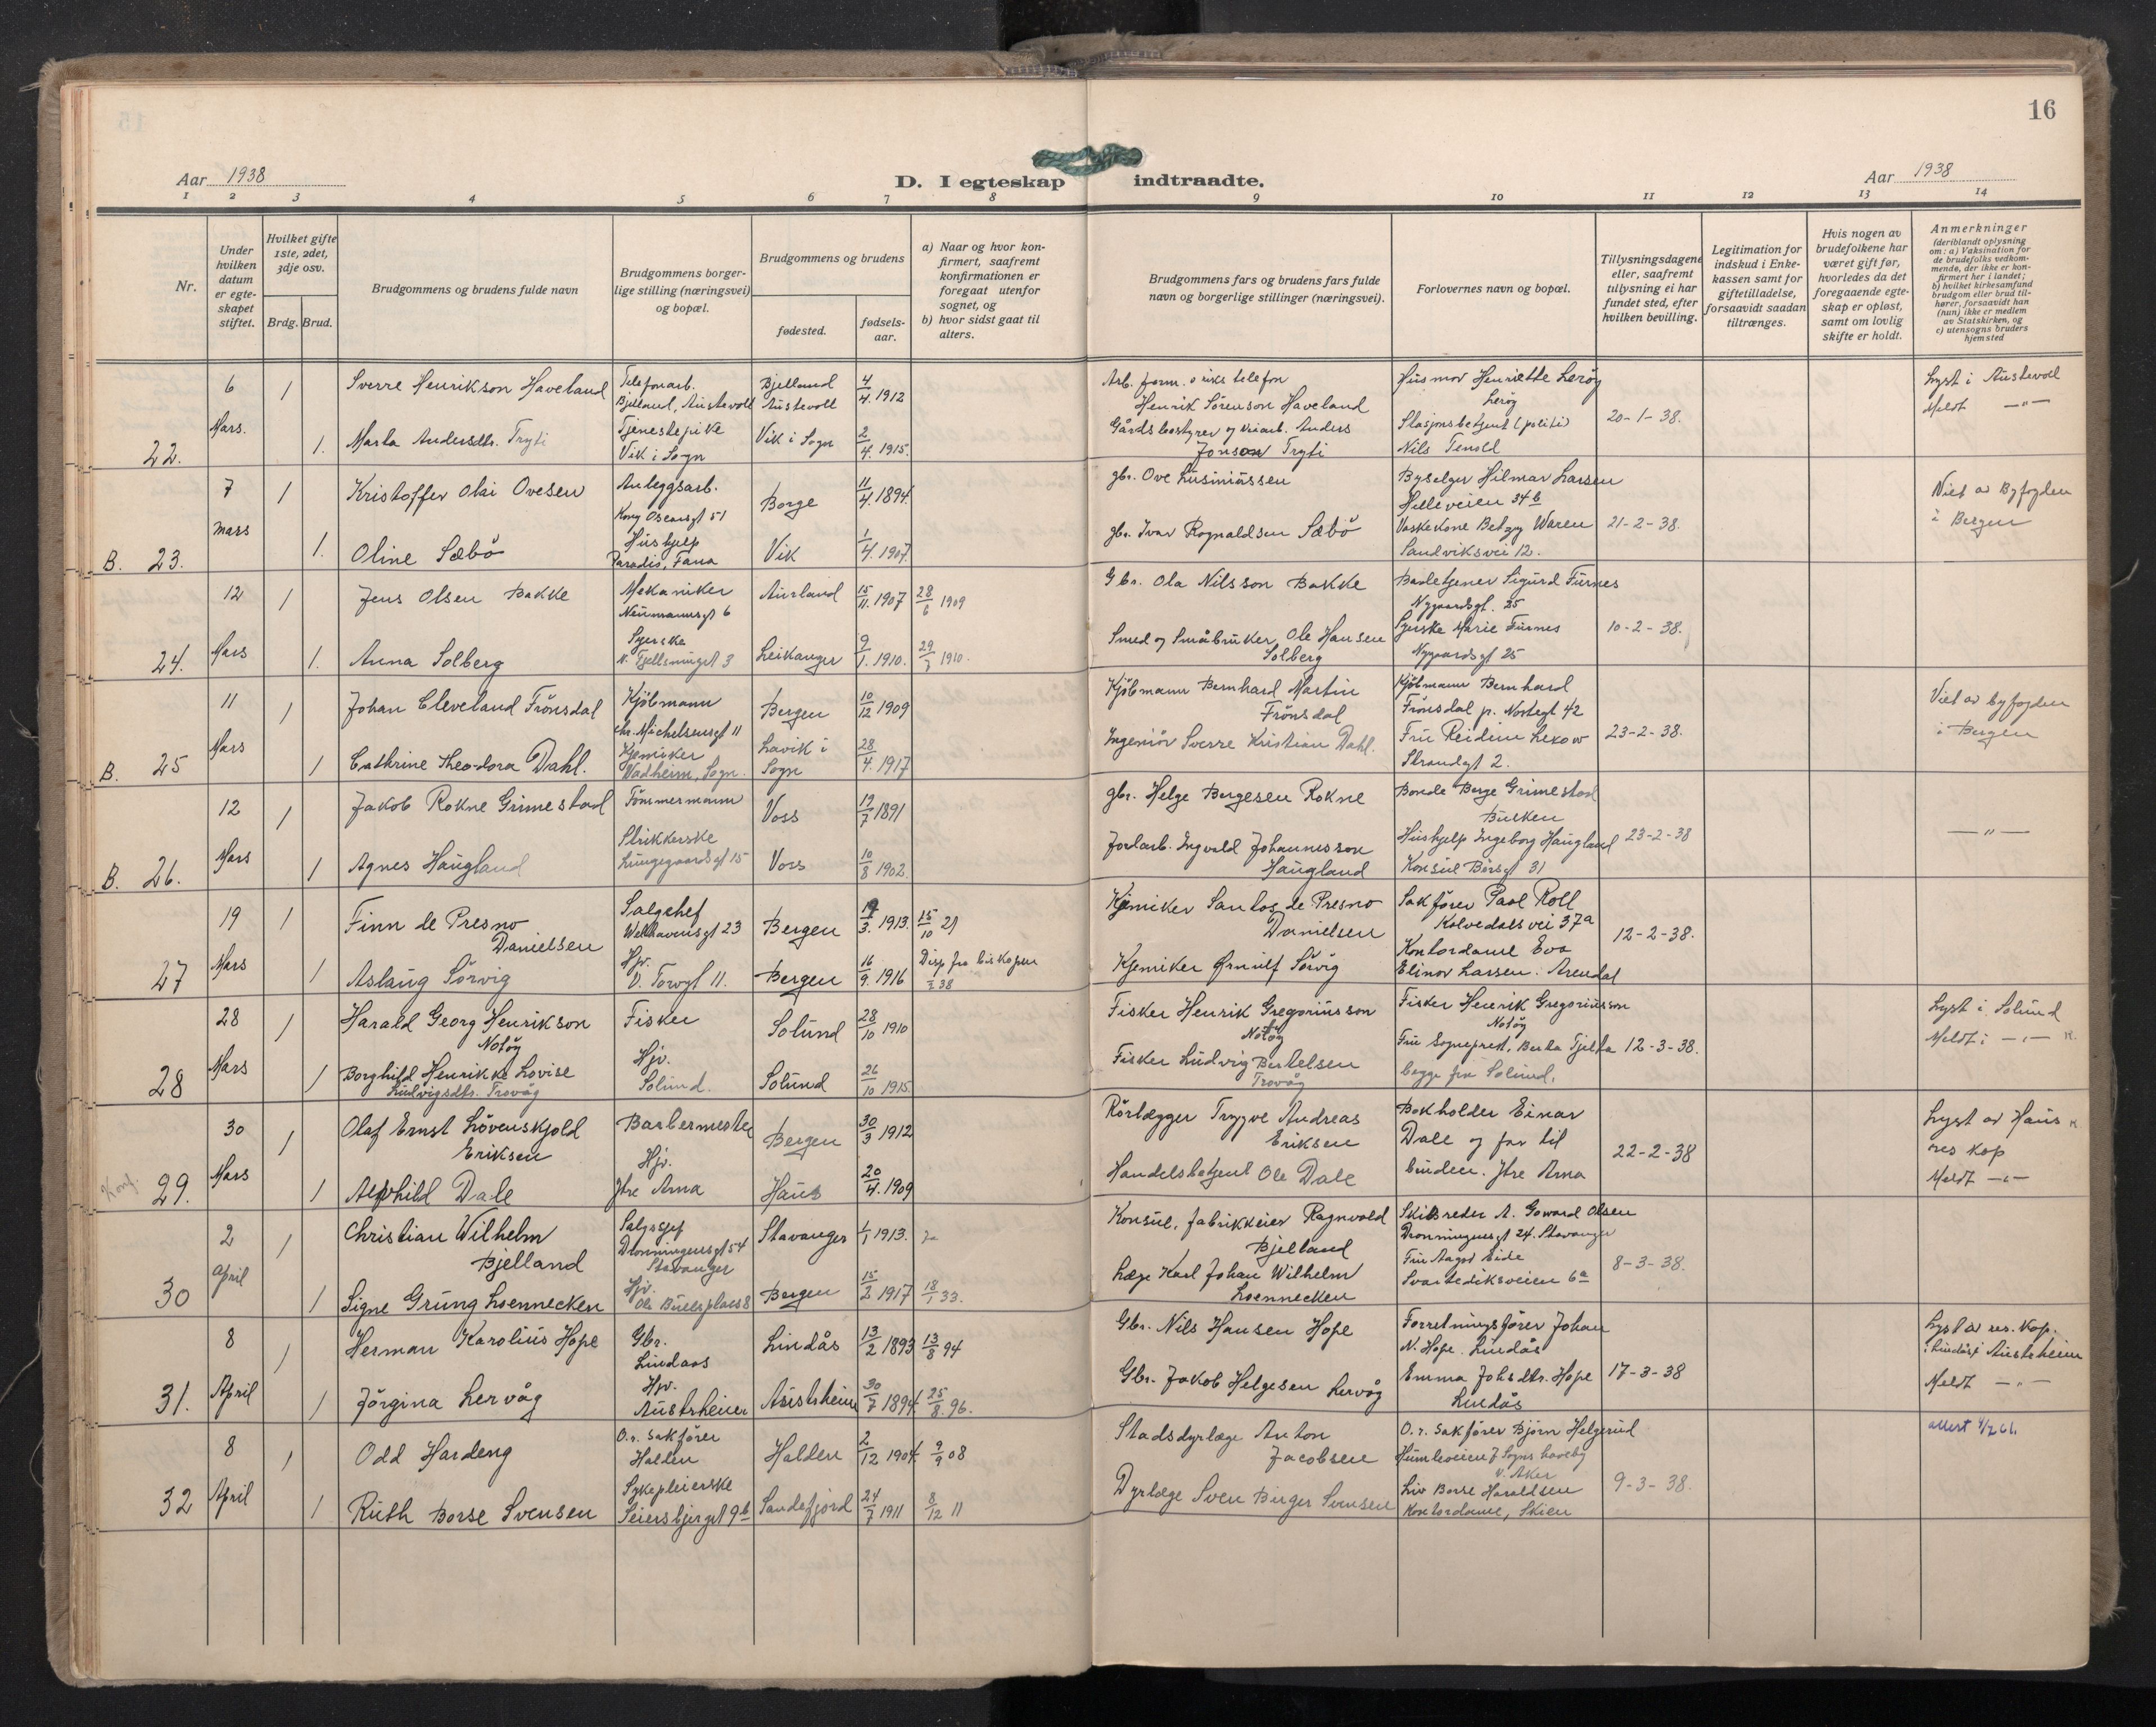 16
Aar 1938
D. I egteskap indtraadte.
Aar 1938
1 2 3 4 5 6 7 8 9 10 11 12 13 14
Nr.
Under hvilken datum er egte-skapet stiftet.
Hvilket gifte 1ste, 2det, 3dje osv.
Brdg. Brud.
Brudgommens og brudens fulde navn
Brudgommens borger-lige stilling (næringsvei) og bopæl.
Brudgommens og brudens
fødested.
fødsels-aar.
a) Naar og hvor kon-firmert, saafremt konfirmationen er foregaat utenfor sognet, og
b) hvor sidst gaat til alters.
Brudgommens fars og brudens fars fulde navn og borgerlige stillinger (næringsvei).
Forlovernes navn og bopæl.
Tillysningsdagene eller, saafremt tillysning ei har fundet sted, efter hvilken bevilling.
Legitimation for indskud i Enke-kassen samt for giftetilladelse, forsaavidt saadan tiltrænges.
Hvis nogen av brudefolkene har været gift før, hvorledes da det foregaaende egte-skap er opløst, samt om lovlig skifte er holdt.
Anmerkninger
(deriblandt oplysning om: a) Vaksination for de brudefolks vedkom-mende, der ikke er kon-firmert her i landet; b) hvilket kirkesamfund brudgom eller brud til-hører, forsaavidt han (hun) ikke er medlem av Statskirken, og c) utensogns bruders hjemsted
22. 6 Mars. 1 Sverre Henrikson Haveland Telefonarb. Bjelland, Austevoll Bjelland Austevoll 4/4. 1912 Arb. Henrik Sörenson Haveland Husmor Henriette Leröy Leröy 20-1-38. Lyst i Austevoll Meldt —"—
1. Marta Andersdtr. Tryti Tjenestepike Vik i Sogn Vik i Sogn 2/4. 1915. Gårdsbestyrer og veiarb. Anders Jonson Tryti Stasjonsbetjent (politi) Nils Tenold
B. 23. 7 mars 1 Kristoffer Olai Ovesen Anleggsarb. Kong Oscarsgt 51 Borge 11/4. 1894. gbr. Ove Lusiniussen Byselger Hilmar Larsen Helleveien 34b 21-2-38. Viet av Byfogden i Bergen
1. Oline Sæbö Hushjelp Paradis, Fana Vik 1/4. 1907. gbr. Ivar Rognaldsen Sæbö Vaskekone Betzy Waren Sandviksvei 12.
24. 12 Mars 1 Jens Olsen Bakke Mekaniker Neumannsgt 6 Aurland 15/11. 1907 28/6 1909 Gbr. Ola Nilsson Bakke Badetjener Sigurd Furnes Nygaardsgt. 25 10-2-38.
1. Anna Solberg Syerske Leikanger 9/1. 1910. 29/ 1910. Smed og Småbruker Ole Hansen Solberg Syerske Marie Furnes Nygaardsgt 25
B. 25 11 Mars 1 Johan Cleveland Frönsdal Kjöbmann Chr. Michelsensgt 11 Bergen 10/12 1909 Kjöbmann Bernhard Martin Frönsdal Kjöbmann Bernhard Frönsdal p. Nostegt 42 23-2-38. Viet av byfogden i Bergen
1 Cathrine Theodora Dahl. Kjemiker Vadheim, Sogn. Lavik i Sogn 28/4. 1917 Ingeniör Sverre Kristian Dahl. Fru Reidun Lekow Strandgt 2.
B. 26. 12 Mars 1 Jakob Rokne Grimestad Tömmermann Voss 19/7 1891 gbr. Helge Bergesen Rokne Bonde Berge Grimestad Bulken 23-2-38 —"—
1 Agnes Haugland Strikkerske Lungegaardsgt 15 Voss 10/8 1902. Jordarb. Ingvald Johannesson Haugland Hushjelp Ingeborg Haugland Konsul Börsgt 31
27 19 Mars 1 Finn de Presno Danielsen Salgschef Welhavensgt 23 Bergen 3. 1913. 15/10 29 Kjemiker Santos de Presno Danielsen Sakförer Paal Roll Kalvedalsvei 37a 12-2-38.
1 Aslaug Sörvig Hjv. V. Torvgt 11. Bergen 16/9. 1916 Disp fra biskopen 38 Kjemiker Ørnulf Sörvig Kontordame Eva Elinor Larsen. Arendal
28 28 Mars 1 Harald Georg Henrikson Notöy Fisker Solund 28/10 1910 Fisker Henrik Gregoriusson Notöy Fisker Henrik Gregoriusson Notöy 12-3-38. Lyst i Solund Meldt i —"—
1 Borghild Henrikke Lovise Ludvigsdtr. Trovåg Hjv. Solund. Solund 26/10 1915. Fisker Ludvig Bertelsen Trovåg Fru Sogneprest, Berta Tjelta begge fra Solund.
Konf. 29. 30 Mars 1 Olaf Ernst Lövenskjold Eriksen Barbermester Bergen 30/3 1912 Rörlægger Trygve Andreas Eriksen Bokholder Einar Dale og far til bruden. Ytre Arna 22-2-38 Lyst av Haus res kap Meldt —"—
1 Alfhild Dale Hjv. Ytre Arna Haus 20/4. 1909 Handelsbetjent Ole Dale
30 2 April 1 Christian Wilhelm Bjelland Salgssjef Dronningensgt 54 Stavanger Stavanger 1/1 1913. Ja Konsul, fabrikkeier Ragnvald Bjelland Skibsreder A. Goward Olsen Dronningensgt 24. Stavanger 8-3-38.
1 Signe Grung Loennecken Hjv. Ole Bullsplass 8 Bergen 15/2 1917 18/1 33. Læge Karl Johan Wilhelm Loennecken Fru Aagot Eide Svartediksveien 6a
31. 8 April 1 Herman Karolius Hope Gbr. Lindaas Lindås 13/2 1893 13/8 94 Gbr. Nils Hansen Hope Forretningsförer Johan N. Hope. Lindås 17-3-38 Lyst av res. kap. i Lindås i Austrheim Meldt —"—
1 Jörgina Lervåg Hjv. Austrheim Austrheim 30/7 1894. 25/8. 96. Gbr. Jakob Helgesen Lervåg Emma Johsdtr. Hope Lindås
32 8 April 1 Odd Hardeng O.r. Sakförer Halden Halden 2/12 1904. 9/9 08 Stadsdyrlæge Anton Jacobsen O.r. Sakförer Björn Helgerud Humleveien 7 Sogns haveby V. Aker 9-3-38. attest 4/7 61.
1 Ruth Borse Svensen Sykepleierske Seiersbjerget 9b Sandefjord 24/7 1911 8/12 11 Dyrlæge Sven Birger Svensen Liv Borse Haraldsen Kontordame, Skien